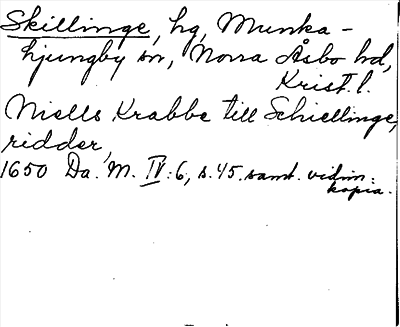 Skillinge, hg, Munka-
hjungby sn, Norra Åsbo hd,
Krist. l.
Niells Krabbe till Schiellinge,
ridder,
1650 Da. M. IV:6, s. 45. samt. vidim.
kopia.